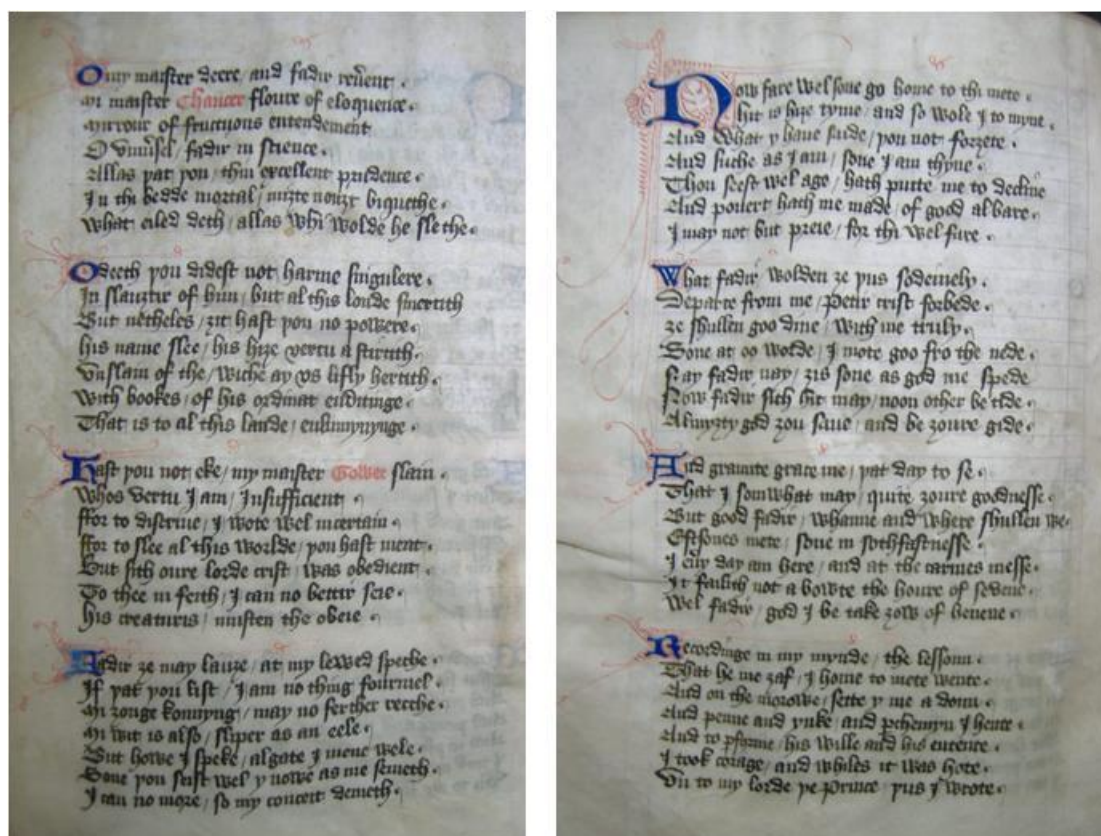 O my maister deere, and fadir reṽent
Mi maister Chaucer floure of eloquence
Mirrour of fructuous entendement
O vniũsel / fadir in science
Allas þat þou / thin excellent prudence
In thi bedde mortal / miȝte nouȝt biquethe
What eiled deth / allas whi wolde he sle the
O deeth þou didest not harme singulere
In slauȝtir of him / but al this londe smertith
But netheles / ȝit hast þou no powere
his name slee / his hiȝe vertu a stirtith
Vnslain of the / wiche ay vs lifly hertith
With bookes / of his ordinat enditinge
That is to al this lande / enlumynynge
Hast þou not eke / my maister Gower slain
Whos vertu I am / Insufficient
ffor to discriue / I wote wel incertain
ffor to slee al this worlde / þou hast ment
But sith oure lorde crist / was obedient
To thee in feith / I can no bettir seie
His creaturis / musten the obeie
Fadir ȝe may lauȝe / at my lewed speche
If þat þou list / I am no thing fourmel
Mi ȝonge konnyng / may no ferther recche
Mi wit is also / sliper as an eele
But howe I speke / algate I mene wele
Sone þou seist wel y nowe as me semeth
I can no more / so my conceit demeth
Now fare wel sone go home to thi mete
hit is hiȝe tyme / and so wole I to myne
And what y haue saide / þou not forȝete
And suche as I am / sone I am thyne
Thou seest wel age / hath putte me to decline
And pouert hath me made / of good al bare
I may not but preie / for thi wel fare
What fadir wolden ȝe þus sodeinely
Departe from me / Petir crist forbede
ȝe shullen goo dine / with me truly
Sone at oo worde / I mote goo fro the nede
Nay fadir nay / ȝis sone as god me spede
Now fadir sith hit may / noon other be tide
Almyȝty god ȝou saue / and be ȝoure gide
And graunte grace me / þat day to se
That I somwhat may / quite ȝoure goodnesse
But good fadir / whanne and where shullen we
Eftsones mete / sone in sothfastnesse
I eũy day am here / and at the carmes messe
It failith not a bowte the houre of sevene
Wel fadir / god I be take ȝow of hevene
Recordinge in my mynde / the lessoun
That he me ȝaf / I home to mete wente
And on the morowe / sette y me a doun
And penne and ynke / and pchemyn I hente
And to pforme / his wille and his entente
I took corage / and whiles it was hote
Vn to my lorde þe Prince / þus I wrote